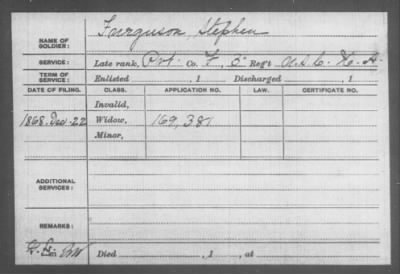 Furguson, Stephen
NAME OF SOLDIER:
SERVICE: Late rank, Pvt. Co. F, 5" Reg't U.S.C.H.A.
TERM OF SERVICE: Enlisted , 1 Discharged , 1
DATE OF FILING. CLASS. APPLICATION NO. LAW. CERTIFICATE NO.
Invalid,
1868. Dec. 22 Widow, 169,381
Minor,
ADDITIONAL SERVICES:
REMARKS:
Died , 1 , at